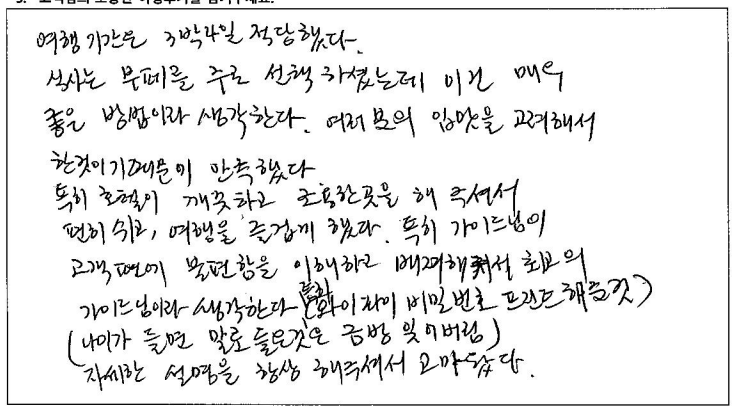 여행 기간은 3박4일 적당했다.
식사는 부페를 주로 선택 하셨는데 이건 매우
좋은 방법이라 생각한다. 여러 분의 입맛을 고려해서
한것이기때문에 만족했다
특히 호텔이 깨끗하고 조용한곳을 해 주셔서
편히 쉬고, 여행을 즐겁게 했다. 특히 가이드님이
고객편에 불편함을 이해하고 배려해주셔서 최고의
가이드님이라 생각한다 (와이파이 비밀번호 프린트해준것)
(나이가 들면 말로 들은것은 금방 잊어버림)
자세한 설명을 항상 해주셔서 고마웠다.